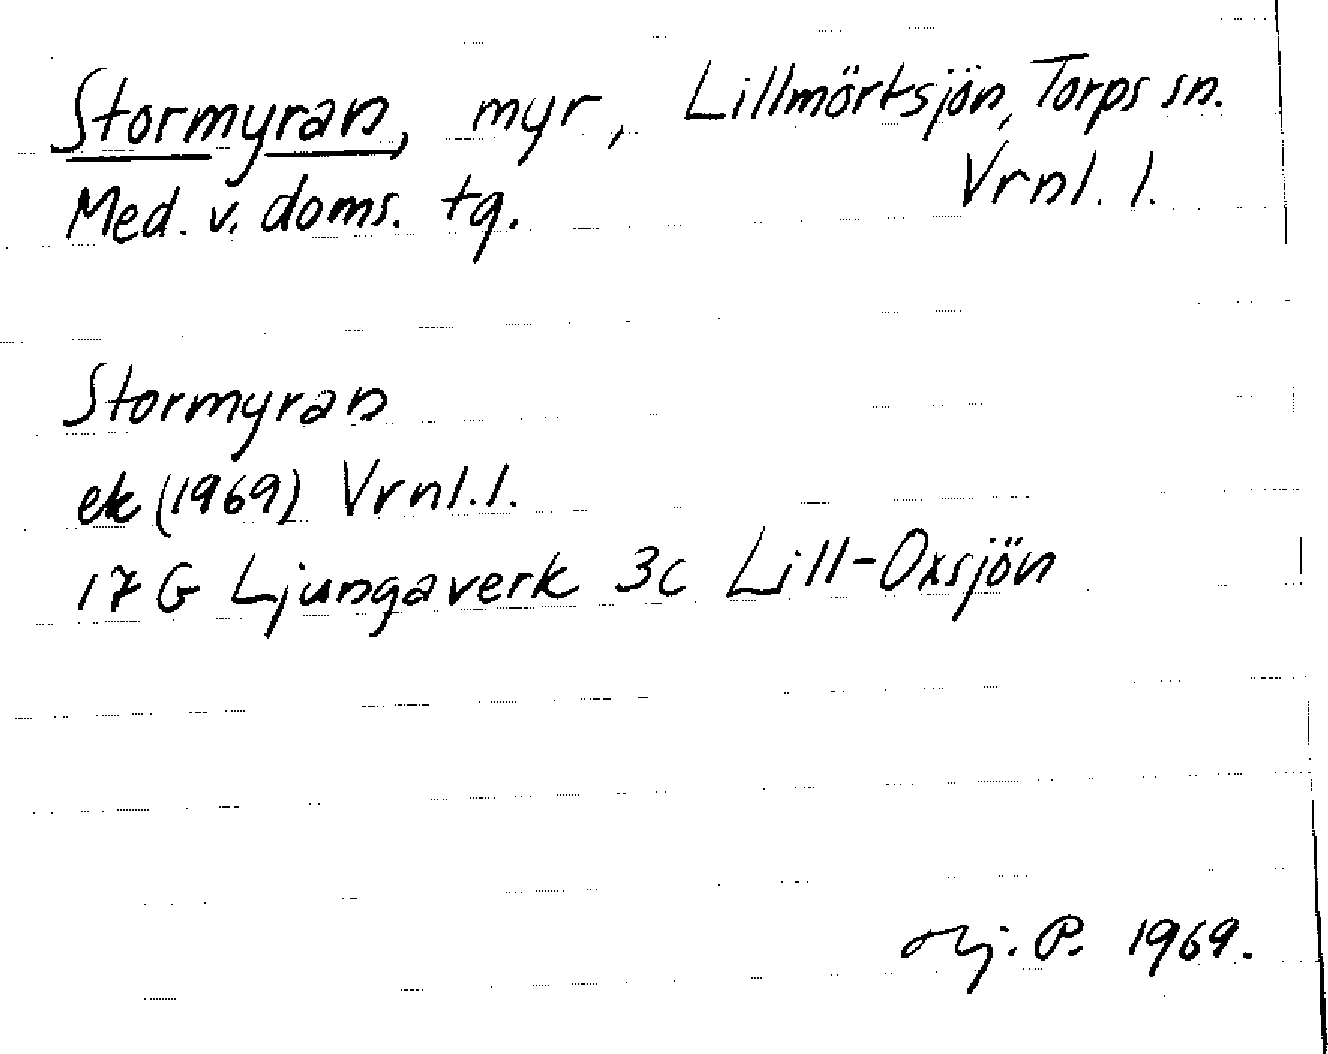 Stormyran, myr, Lillmörtsjön, Torps sn.
Vrnl. l.
Med. v. doms. tg.
Stormyran
ek (1969) Vrnl. l.
17 G Ljungaverk 3c Lill-Oxsjön
P. 1969.